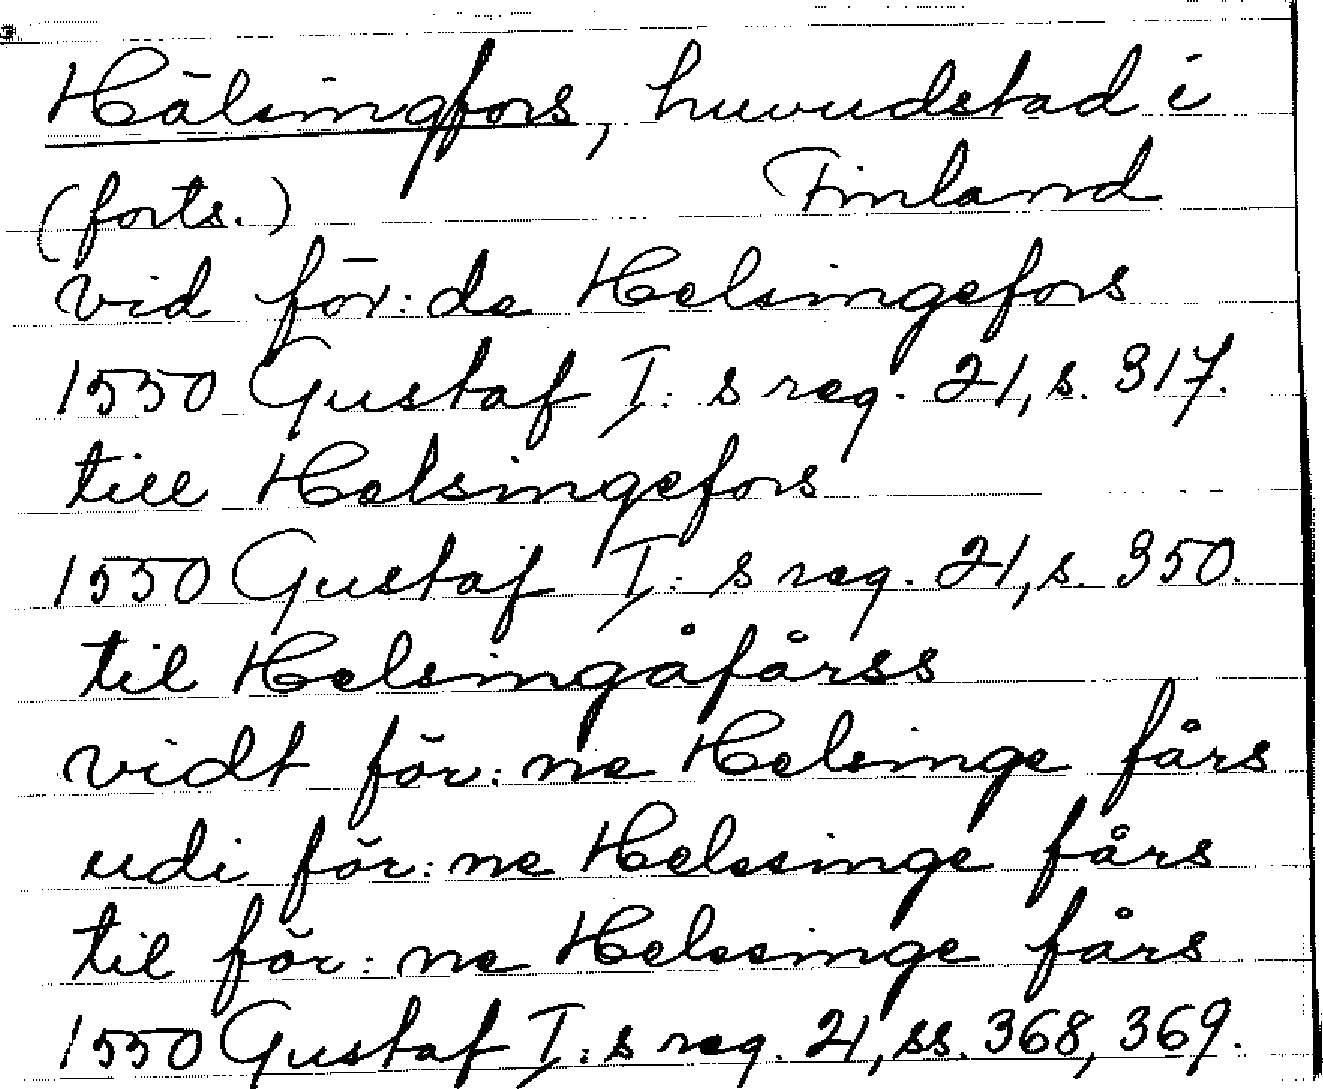 Hälsingfors, huvudstad i
(forts.) Finland
vid för:de Helsingefors
1550 Gustaf I:s reg. 21, s. 317.
till Helsingefors
1550 Gustaf I:s reg. 21, s. 350.
til Helsingåfårss
vidt för:ne Helsinge fårs
udi för:ne Helssinge fårs
til för:ne Helssinge fårs
1550 Gustaf I:s reg. 21, ss. 368, 369.